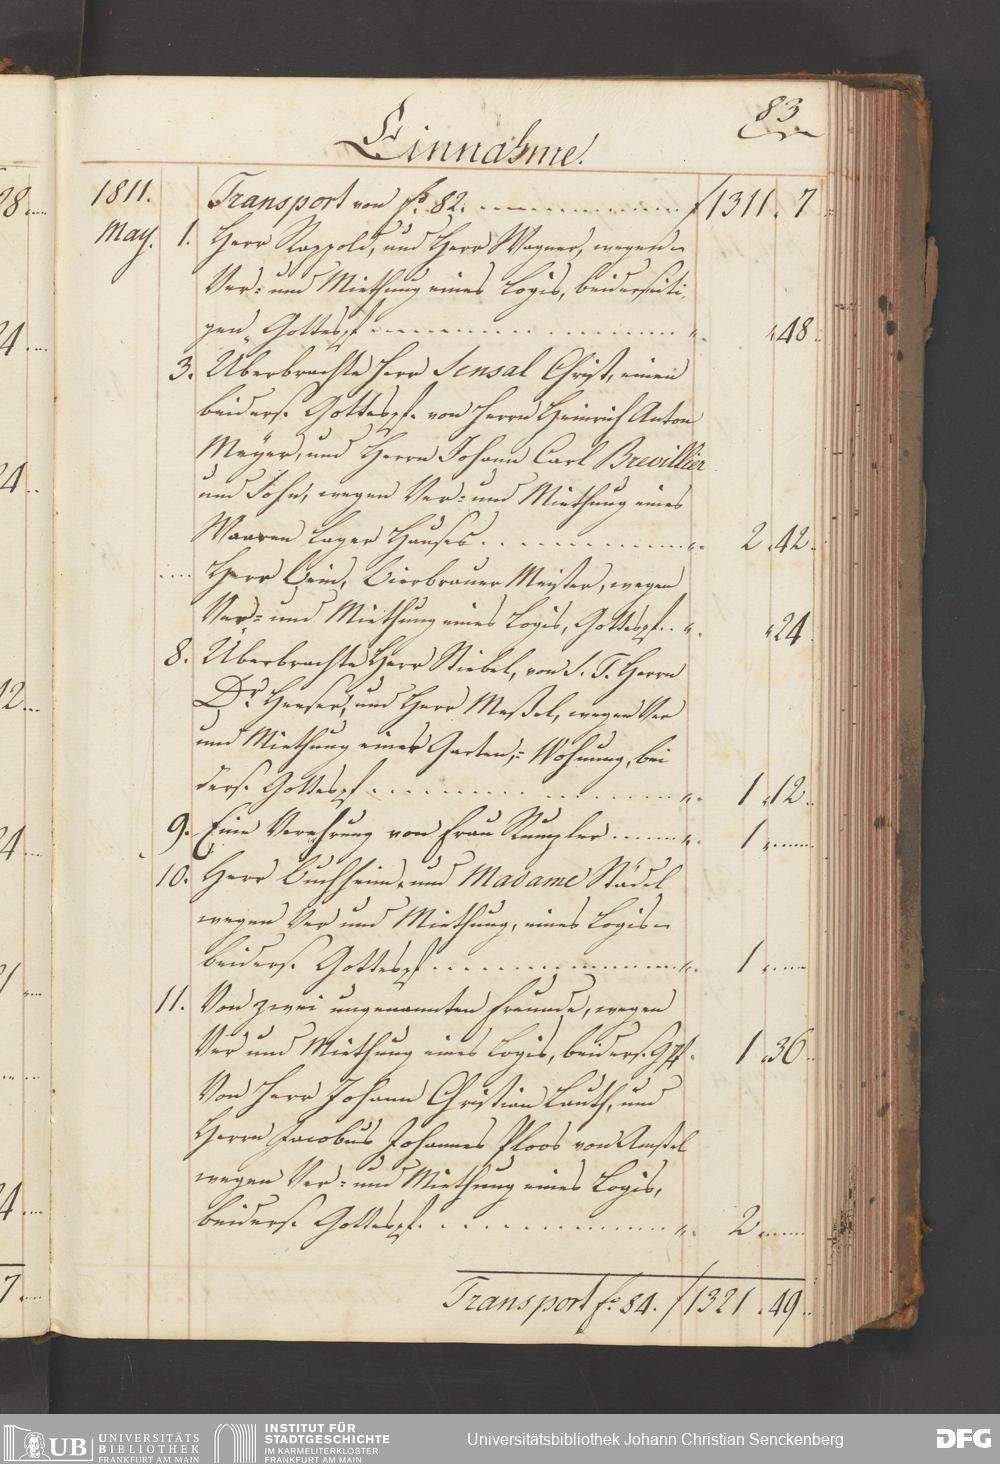 83
Einnahme.
1811. Transport von fo. 82. f 1311. 7
May. 1. Herr Rappold, und Herr Wagner, wegen
Ver= und Miethung eines Logis, beiderseiti
gen Gottespf. 48
3. Überbrachte Herr Sensal Christ, einen
beiders. Gottespf. von Herrn Heinrich Anton
Meyer, und Herrn Johann Carl Brevillier
und Sohn, wegen Ver= und Miethung eines
Waaren Lager Hauses 2.42.
Herr Hein, Bierbrauer Meister, wegen
Ver= und Miethung eines Logis, Gottespf. 24
8. Überbrachte Herr Stiebel, von S. T. Herrn
Dr. Heuser, und Herr Meßel, wegen Ver
und Miethung eines Garten= Wohnung, bei
ders. Gottespf. 1.12.
9. Eine Verehrung von Frau Rumpler 1
10. Herr Buchheim, und Madame Städel
wegen Ver und Miethung, eines Logis
beiders. Gottespf. 1
11. Von zwei ungenannten Freunde, wegen
Ver und Miethung eines Logis, beiders. Gpf. 1.36
Von Herr Johann Christian Lauth, und
Herrn Jacobus Johannes Ploos von Amstel
wegen Ver= und Miethung eines Logis,
beiders. Gottespf. 2
Transport fo. 84. f 1321.49
28
24
24
12
24
24
7
UB UNIVERSITÄTS
BIBLIOTHEK
FRANKFURT AM MAIN
INSTITUT FÜR
STADTGESCHICHTE
IM KARMELITERKLOSTER
FRANKFURT AM MAIN
Universitätsbibliothek Johann Christian Senckenberg
DFG